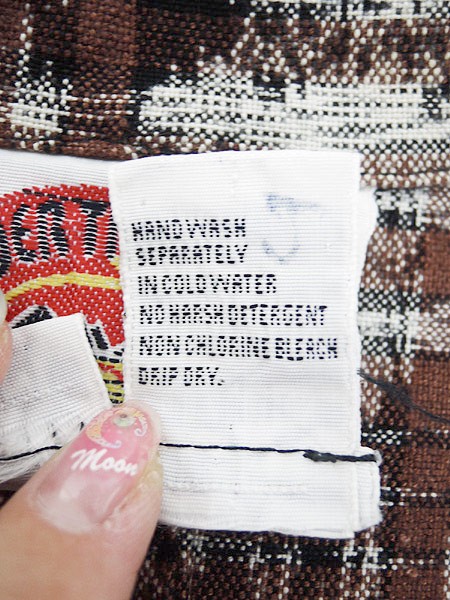 HAND WASH
SEPARATELY
IN COLD WATER
NO HARSH DETERGENT
NON CHLORINE BLEACH
DRIP DRY.
Moon